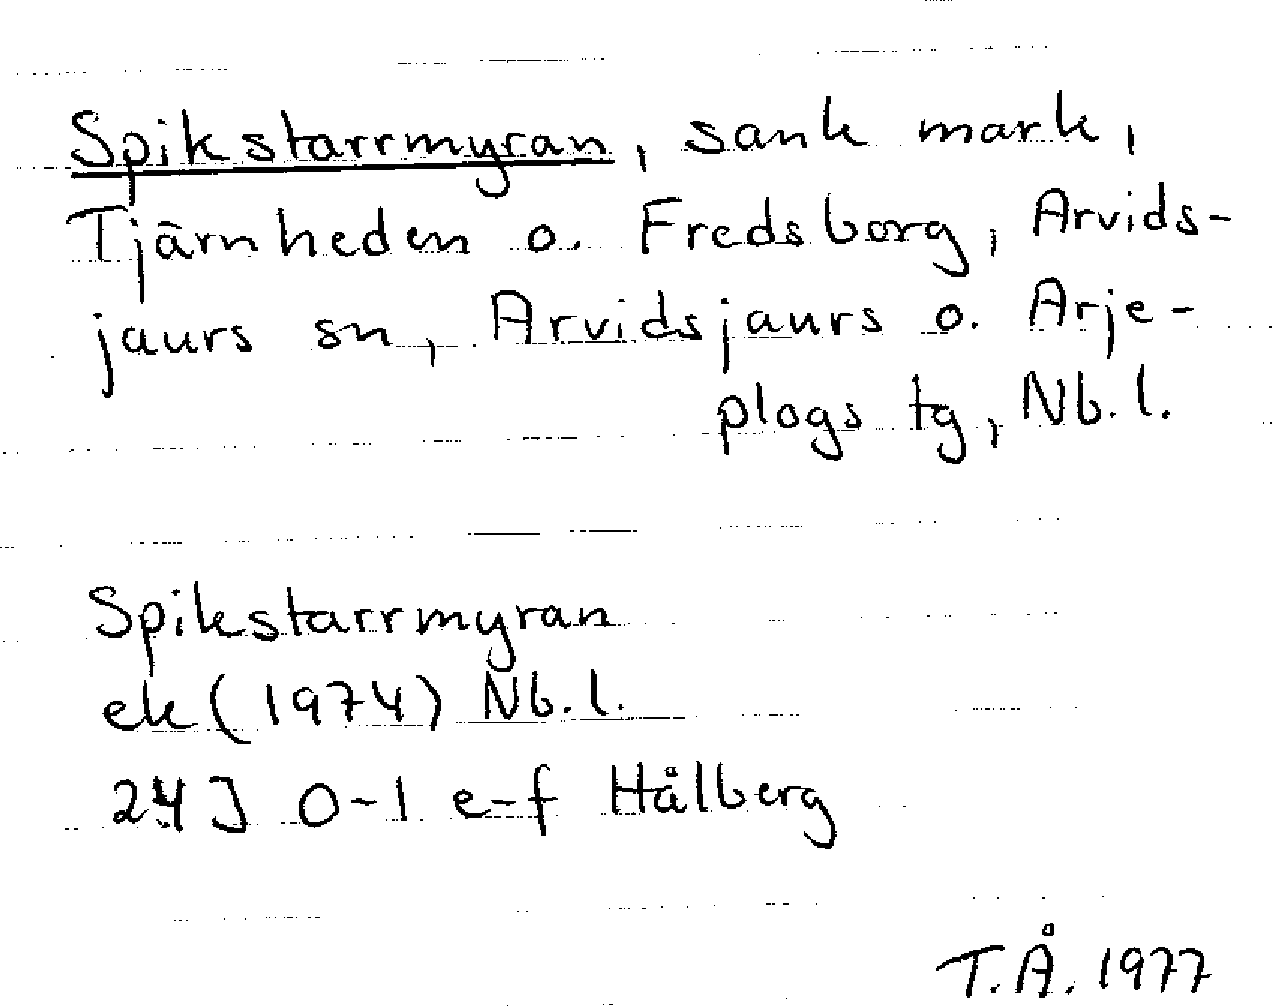 Spikstarrmyran, sank mark,
Tjärnheden o. Fredsborg, Arvids-
jaurs sn, Arvidsjaurs o. Arje-
plogs tg, Nb.l.
Spikstarrmyran
ek (1974) Nb.l.
24J 0-1 e-f Hålberg
T.Å. 1977